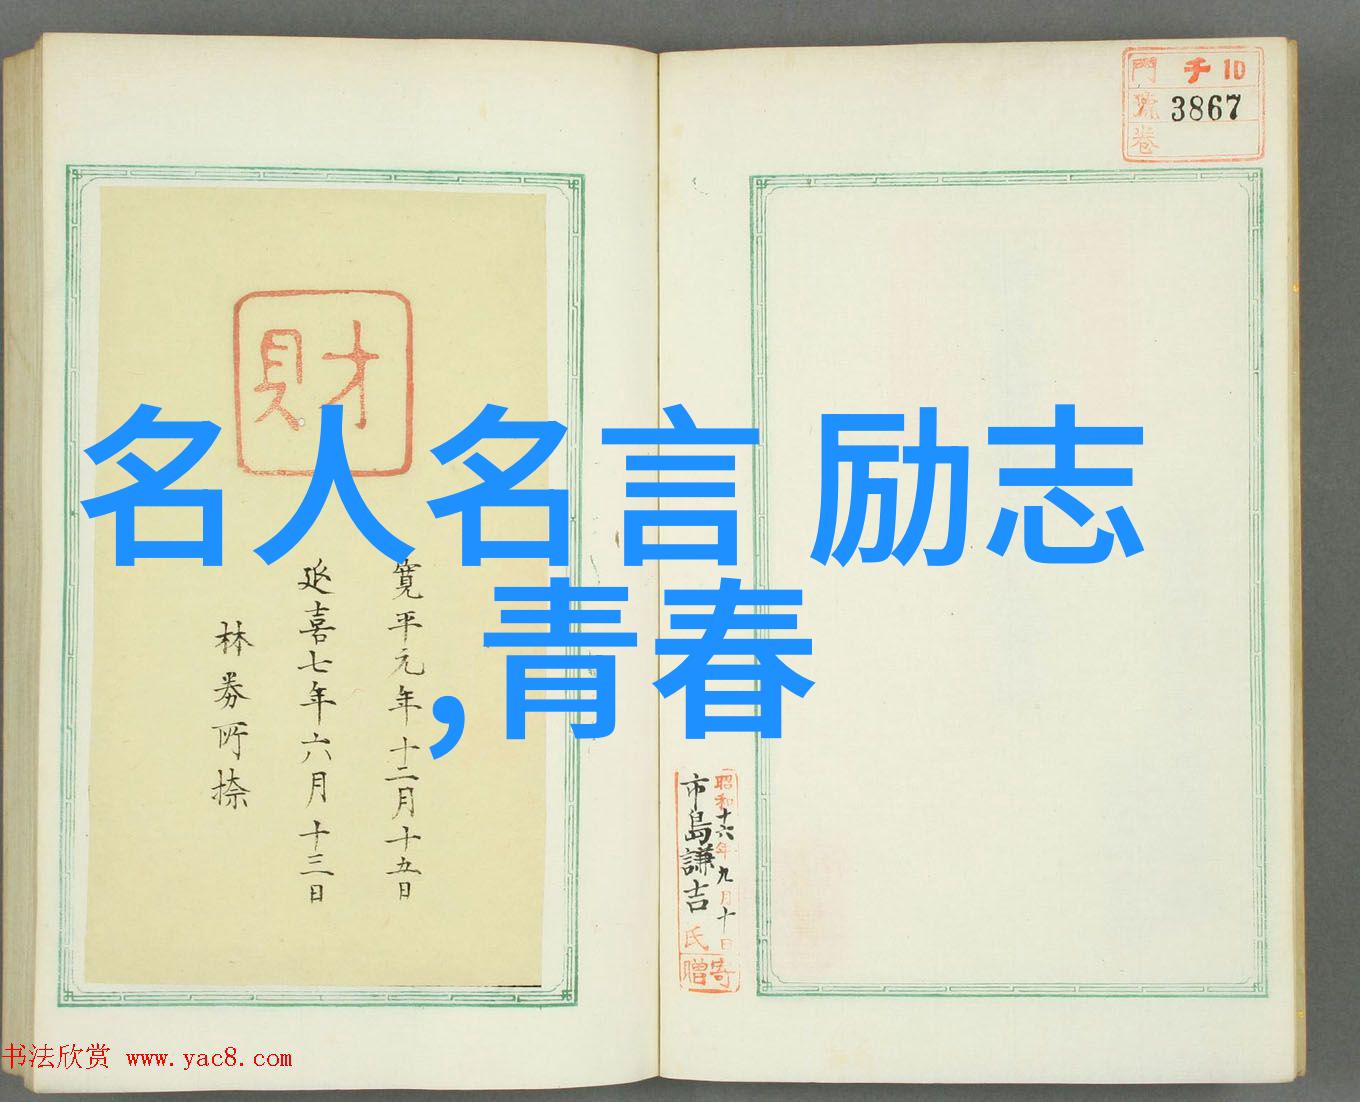 門 千 10
號 3867
卷
財
寛平元年十二月十五日
延喜七年六月十三日
林券所捺
名人名言 励志
,青春
昭和十六年九月十日
市島謙吉氏
寄贈
书法欣赏 www.yac8.com